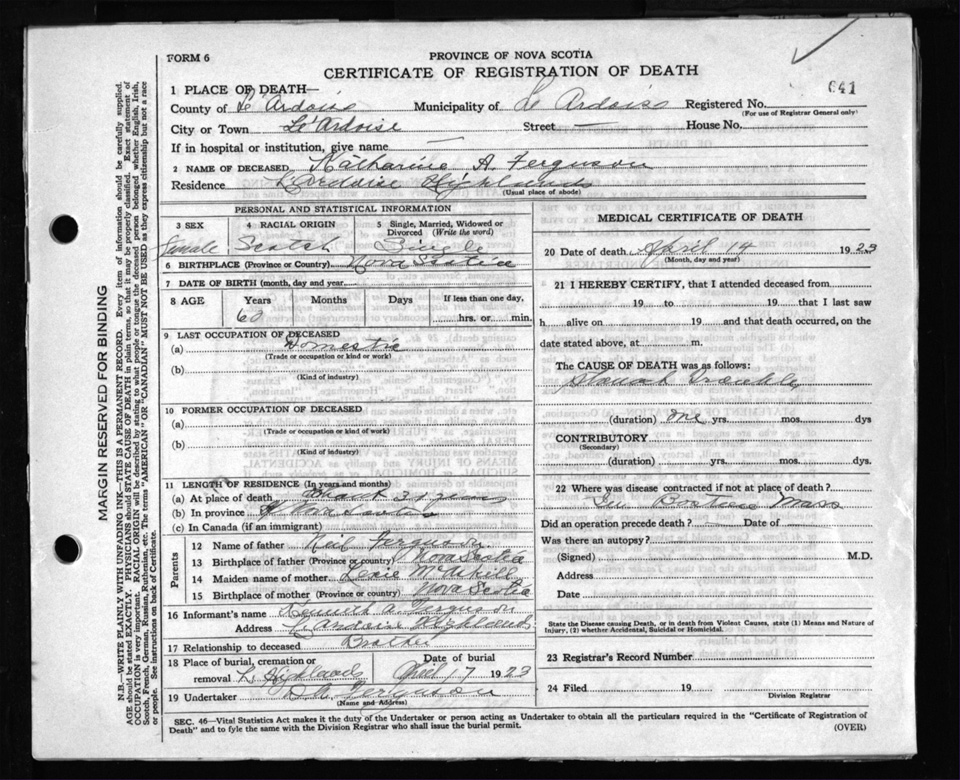 FORM 6
PROVINCE OF NOVA SCOTIA
CERTIFICATE OF REGISTRATION OF DEATH
1 PLACE OF DEATH—
County of Le'Ardoise Municipality of Le Ardoise Registered No. 641
(For use of Registrar General only)
City or Town Le'Ardoise Street — House No.
If in hospital or institution, give name —
2 NAME OF DECEASED Katharine A. Ferguson
Residence L'Ardoise Highlands
(Usual place of abode)
PERSONAL AND STATISTICAL INFORMATION
3 SEX 4 RACIAL ORIGIN 5 Single, Married, Widowed or Divorced (Write the word)
female Scotch Single
6 BIRTHPLACE (Province or Country) Nova Scotia
7 DATE OF BIRTH (month, day and year)
8 AGE Years Months Days If less than one day,
60 hrs. or min.
9 LAST OCCUPATION OF DECEASED
(a) Domestic
(Trade or occupation or kind or work)
(b)
(Kind of industry)
10 FORMER OCCUPATION OF DECEASED
(a)
(Trade or occupation or kind or work)
(b)
(Kind of industry)
11 LENGTH OF RESIDENCE (In years and months)
(a) At place of death about years
(b) In province Nova Scotia
(c) In Canada (if an immigrant)
Parents
12 Name of father Neil Ferguson
13 Birthplace of father (Province or country) Nova Scotia
14 Maiden name of mother McAskill
15 Birthplace of mother (Province or country) Nova Scotia
16 Informant's name Kenneth A. Ferguson
Address L'Ardoise Highlands
17 Relationship to deceased Brother
18 Place of burial, cremation or removal L. Highlands Date of burial April 17 1923
19 Undertaker Ferguson
(Name and Address)
MEDICAL CERTIFICATE OF DEATH
20 Date of death April 14 1923
(Month, day and year)
21 I HEREBY CERTIFY, that I attended deceased from
19 to 19 that I last saw
h alive on 19 and that death occurred, on the
date stated above, at m.
The CAUSE OF DEATH was as follows:
Stomach Trouble
(duration) one yrs. mos. dys
CONTRIBUTORY
(Secondary)
(duration) yrs. mos. dys.
22 Where was disease contracted if not at place of death?
In Boston Mass
Did an operation precede death? Date of
Was there an autopsy?
(Signed) M.D.
Address
Date
State the Disease causing Death, or in death from Violent Causes, state (1) Means and Nature of Injury, (2) whether Accidental, Suicidal or Homicidal.
23 Registrar's Record Number
24 Filed 19
Division Registrar
SEC. 46—Vital Statistics Act makes it the duty of the Undertaker or person acting as Undertaker to obtain all the particulars required in the "Certificate of Registration of
Death" and to fyle the same with the Division Registrar who shall issue the burial permit. (OVER)
MARGIN RESERVED FOR BINDING
N.B.—WRITE PLAINLY WITH UNFADING INK—THIS IS A PERMANENT RECORD. Every item of information should be carefully supplied.
AGE should be stated EXACTLY. PHYSICIANS should STATE CAUSE OF DEATH in plain terms, so that it may be properly classified. Exact statement of
OCCUPATION is very important. RACIAL ORIGIN will be described by stating to what people or tongue the deceased person belonged whether English, Irish,
Scotch, French, German, Russian, Ruthenian, etc. The terms "AMERICAN" OR "CANADIAN" MUST NOT BE USED as they express citizenship but not a race
or people. See instructions on back of Certificate.